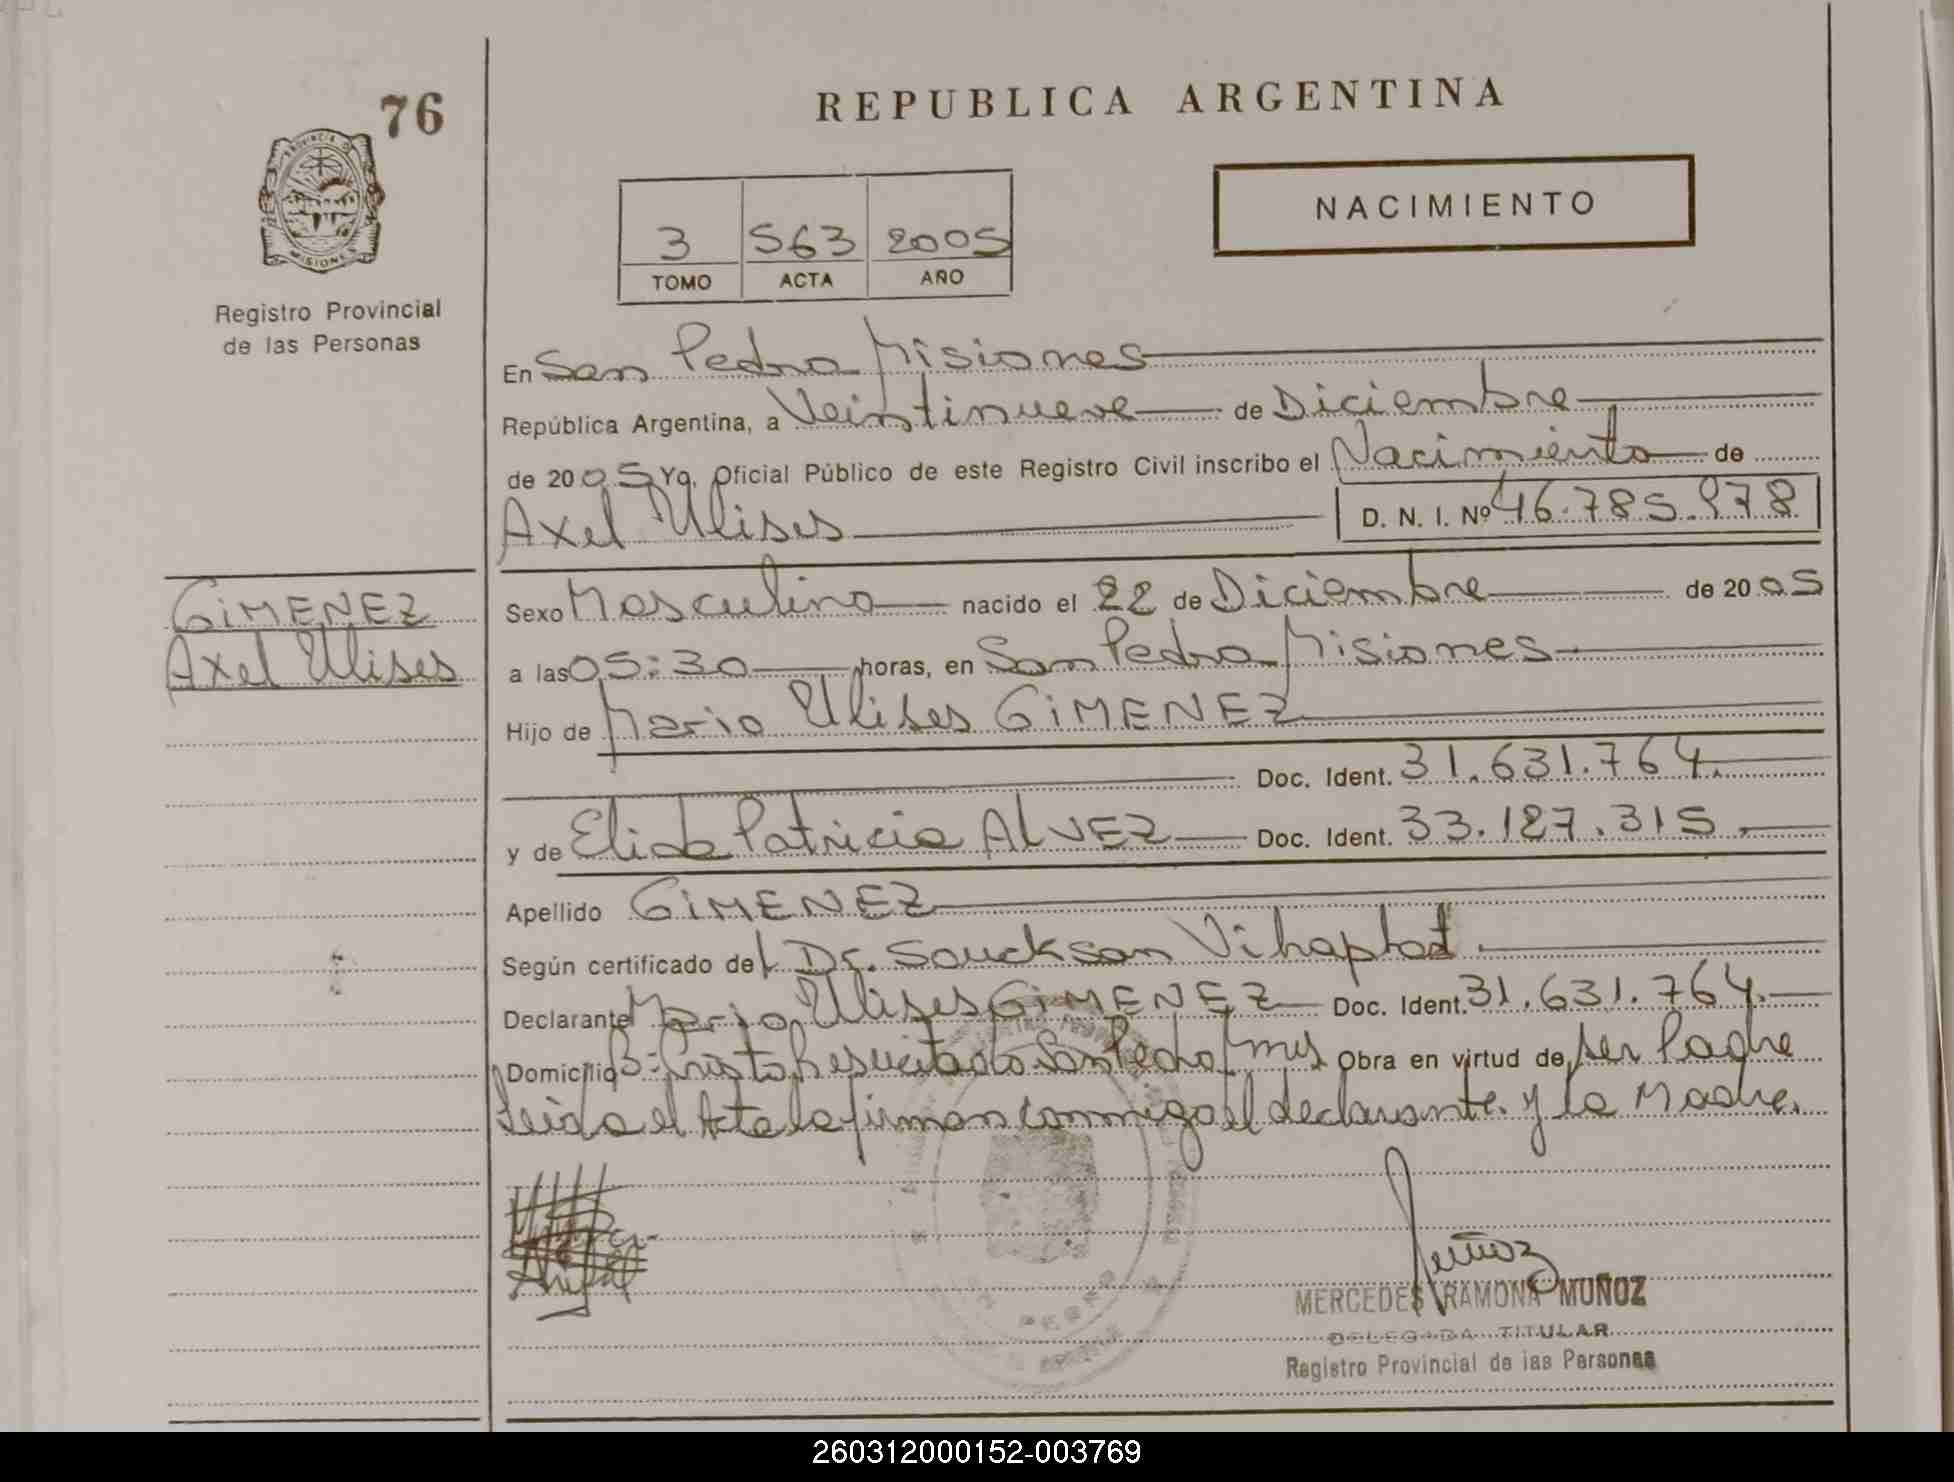 76
REPUBLICA ARGENTINA
PROVINCIA DE
MISIONES
Registro Provincial
de las Personas
3 563 2005
TOMO ACTA AÑO
NACIMIENTO
En San Pedro Misiones
República Argentina, a Veintinueve de Diciembre
de 2005 Yo, Oficial Público de este Registro Civil inscribo el Nacimiento de
Axel Ulises D. N. I. Nº 46.785.978
GiMENEZ
Axel Ulises
Sexo Masculino nacido el 22 de Diciembre de 2005
a las 05:30 horas, en San Pedro Misiones
Hijo de Mario Ulises GiMENEZ
Doc. Ident. 31.631.764.
y de Elida Patricia AlVEZ Doc. Ident. 33.127.315.
Apellido GiMENEZ
Según certificado del Dr. Souckson Vihaphat.
Declarante Mario Ulises GiMENEZ Doc. Ident. 31.631.764.
Domicilio B= Cristo Resucitado San Pedro Mnes Obra en virtud de ser Padre
Leida el Acta la firman conmigo el declarante y la Madre.
Muñoz
MERCEDES RAMONA MUÑOZ
DELEGADA TITULAR
Registro Provincial de las Personas
260312000152-003769